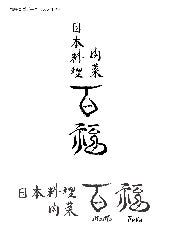 日本料理
肉菜
百福
日本料理
肉菜
百福
Momo Fuku